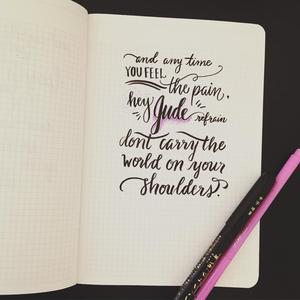 and any time
YOU FEEL
the pain,
hey Jude refrain
dont carry the
world on your
shoulders.